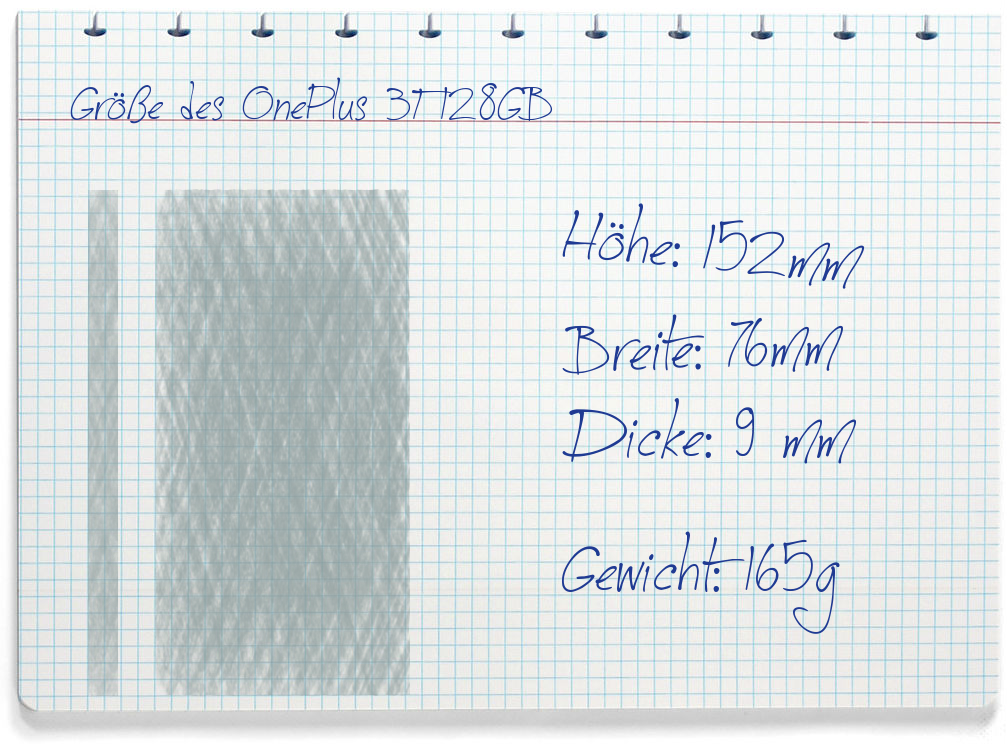 Größe des OnePlus 3T128GB
Höhe: 152mm
Breite: 76mm
Dicke: 9 mm
Gewicht: 165g